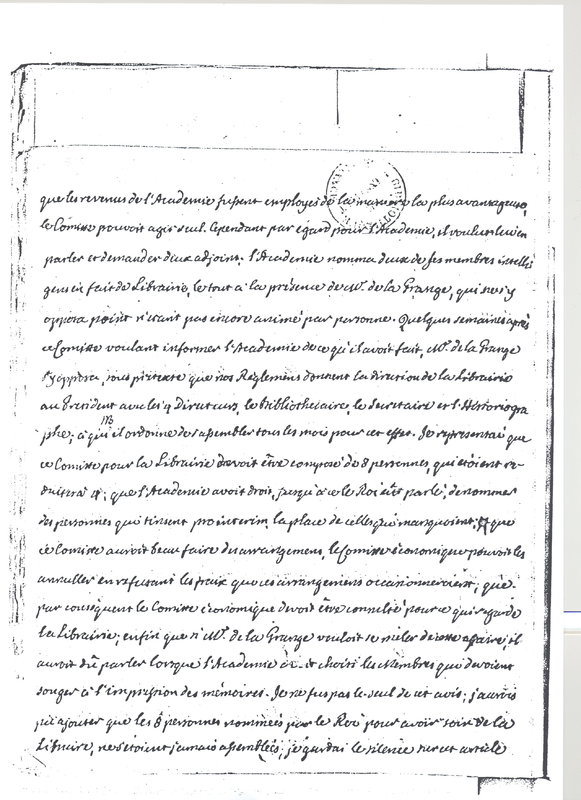 que les revenus de l'Academie fussent employés de la maniere la plus avantageuse,
le Comitte pouvoit agir seul. Cependant par egard pour l'Academie, il voulut lui en
parler et demander deux adjoints. l'Academie nomma deux de ses membres intelli
gens en fait de Librairie, le tout à la présence de Mr. de la Grange, qui ne s'y
opposa point n'etant pas encore animé par personne. Quelques semaines après
ce Comitte voulant informer l'Academie de ce qu'il avoit fait, Mr. de la Grange
s'y opposa, sous pretexte que nos Reglemens donnent la direction de la Librairie
au President avec les 4 Directeurs, le Bibliothecaire, le Secretaire et l'Historiogra
phe; à qui il ordonne de s'assembler tous les mois pour cet effet. Je representai que
ce Comitte pour la Librairie devoit être composé de 8 personnes, qui etoient re-
duites à 4; que l'Academie avoit droit, jusqu'à ce le Roi eût parlé, de nommer
des personnes qui tinssent pro interim, la place de celles qui manquoient; que
ce Comitte auroit beau faire des arrangemens, le Comitte économique pouvoit les
annuller en refusant les fraix que ces arrangemens occasionneroient; que
par conséquent le Comitte économique devoit être consulté pour ce qui regarde
la Librairie; enfin que si Mr. de la Grange vouloit se mêler de cette affaire, il
auroit dû parler lorsque l'Academie choisi les Membres qui devoient
songer à l'impression des mémoires. Je ne fus pas le seul de cet avis; j'aurois
pû ajouter que les 8 personnes nommées par le Roi pour avoir soin de la
Librairie, ne s'étoient jamais assemblées; je gardai le silence sur cet article